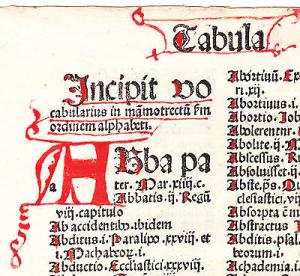 Tabula
Incipit vo
cabularius in mamotrectū ẜm
ordinem alphabeti.
ABba pa
ter. Mar. xiiij. c.
Abbatis. ij. Regū
viij. capitulo
Ab accidentib⁹. ibidem
Abditus. j. Paralipo. xxviij. et
j. Pachabeor. j.
Abductio. Ecclesiastici. xxxviij.
Abortiuū. E
xi. xij.
Abortiuus. j.
Abortio. Job
Absolerentur.
Abolite. ij. M
Abscessus. R
Absoluisset. ij.
Abste. ps. D
clesiastici. vij
Absorpta
Abstractus
Abditis. psal
beorum. j.
Achademia.